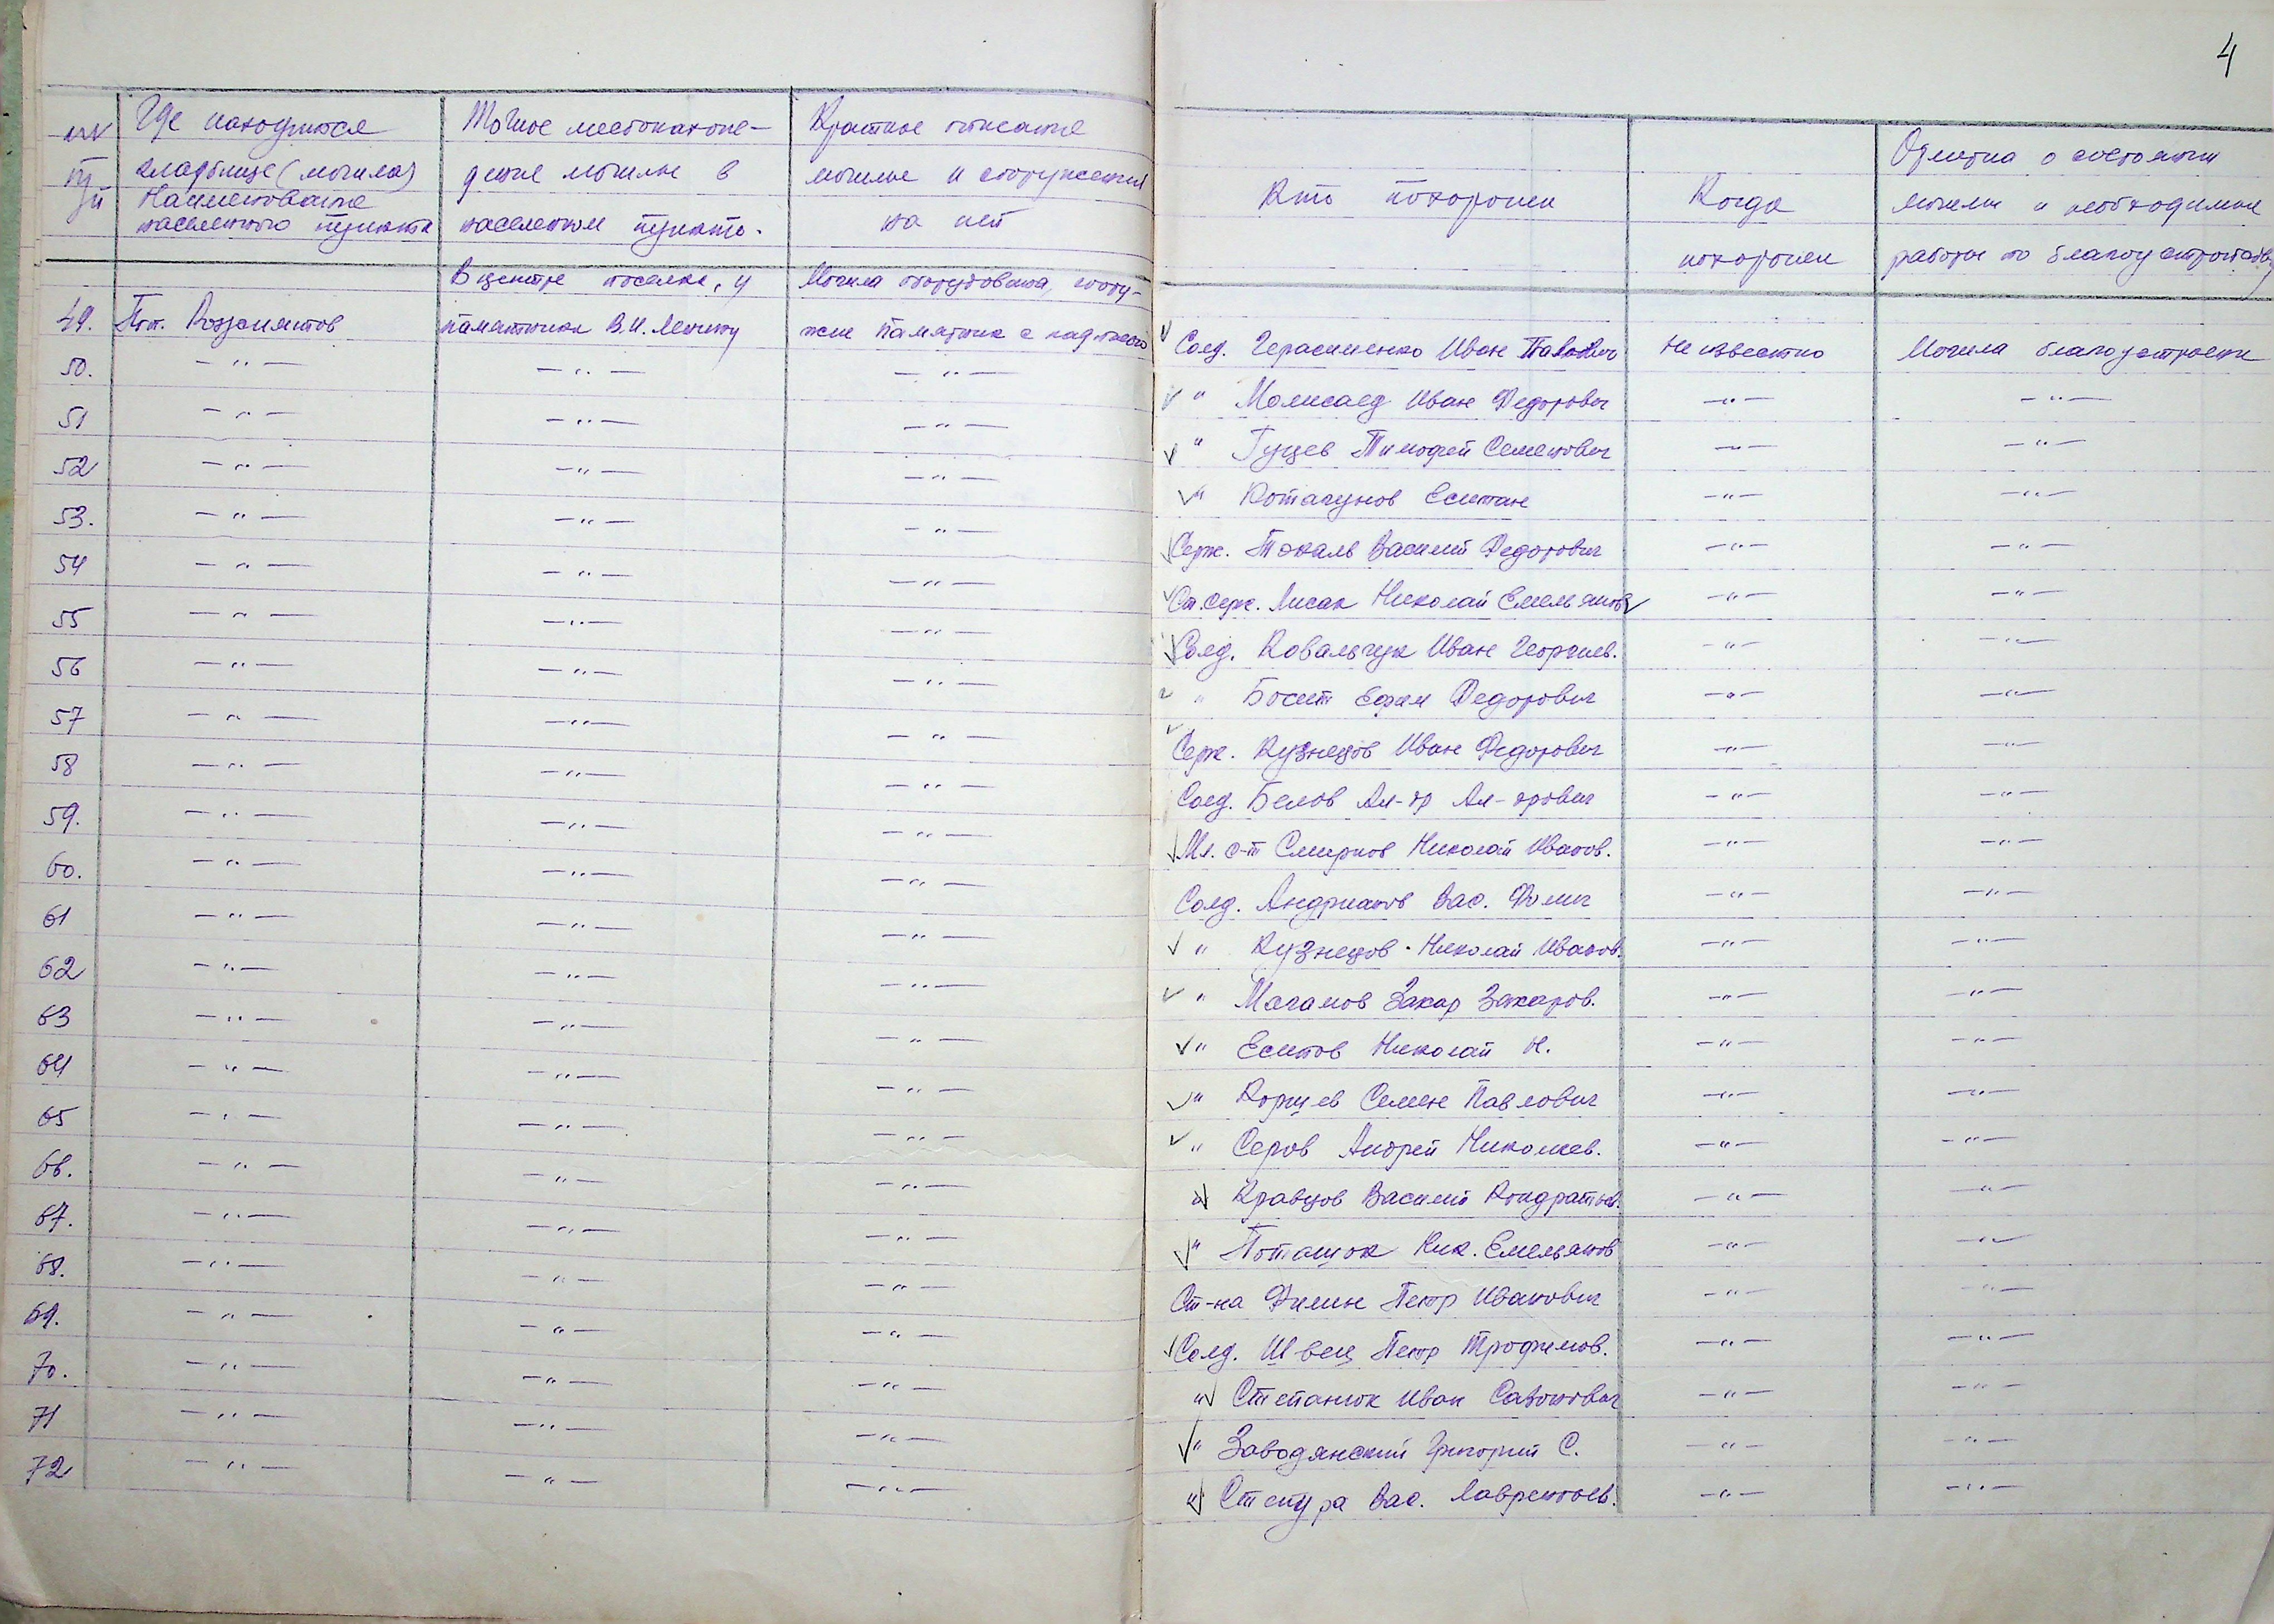 4
Где находится кладбище (могила) Наименование населенного пункта
Точное местонахождение могилы в населенном пункте.
Краткое описание могилы и сооружения на ней
Кто похоронен
Когда похоронен
Отметка о состоянии могилы и необходимые работы по благоустройству
49. Пгт. Рожнятов
В центре поселка, у
памятника В.И. Ленину
Могила оборудована, соору-
жен памятник с надписью
Солд. Герасименко Иван Павлович
Не известно
Могила благоустроена
50. — " — — " — — " — " Иван Федорович — " — — " —
51 — " — — " — — " — " Гущев Тимофей Семенович — " — — " —
52 — " — — " — — " — " — " — — " —
53. — " — — " — — " — Серж. Токаль Василий Федорович — " — — " —
54 — " — — " — — " — Ст. серж. Лисак Николай Емельянов — " — — " —
55 — " — — " — — " — Солд. Ковальчук Иван Георгиев. — " — — " —
56 — " — — " — — " — " Ефим Федорович — " — — " —
57 — " — — " — — " — Серж. Кузнецов Иван Федорович — " — — " —
58 — " — — " — — " — Солд. Белов Ал-др Ал-дрович — " — — " —
59. — " — — " — — " — Мл. с-т Смирнов Николай Иванов. — " — — " —
60. — " — — " — — " — Солд. Андрианов Вас. — " — — " —
61 — " — — " — — " — " Кузнецов Николай Иванов. — " — — " —
62 — " — — " — — " — " Магамов Закар Закаров. — " — — " —
63 — " — — " — — " — " Есипов Николай Н. — " — — " —
64 — " — — " — — " — " Корнев Семен Павлович — " — — " —
65 — " — — " — — " — " Серов Андрей Николаев. — " — — " —
66. — " — — " — — " — " Кравцов Василий Кондратьев. — " — — " —
67. — " — — " — — " — " Поташок Ник. Емельянов — " — — " —
68. — " — — " — — " — Ст-на Филин Петр Иванович — " — — " —
69. — " — — " — — " — Солд. Швец Петр Трофимов. — " — — " —
70. — " — — " — — " — " Степанюк Иван — " — — " —
71 — " — — " — — " — " Заводянский Григорий С. — " — — " —
72 — " — — " — — " — " Вас. Лаврентьев. — " — — " —